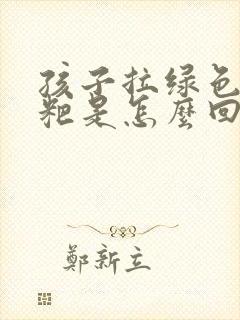 孩子拉绿色
粑是怎麼回
鄭新立